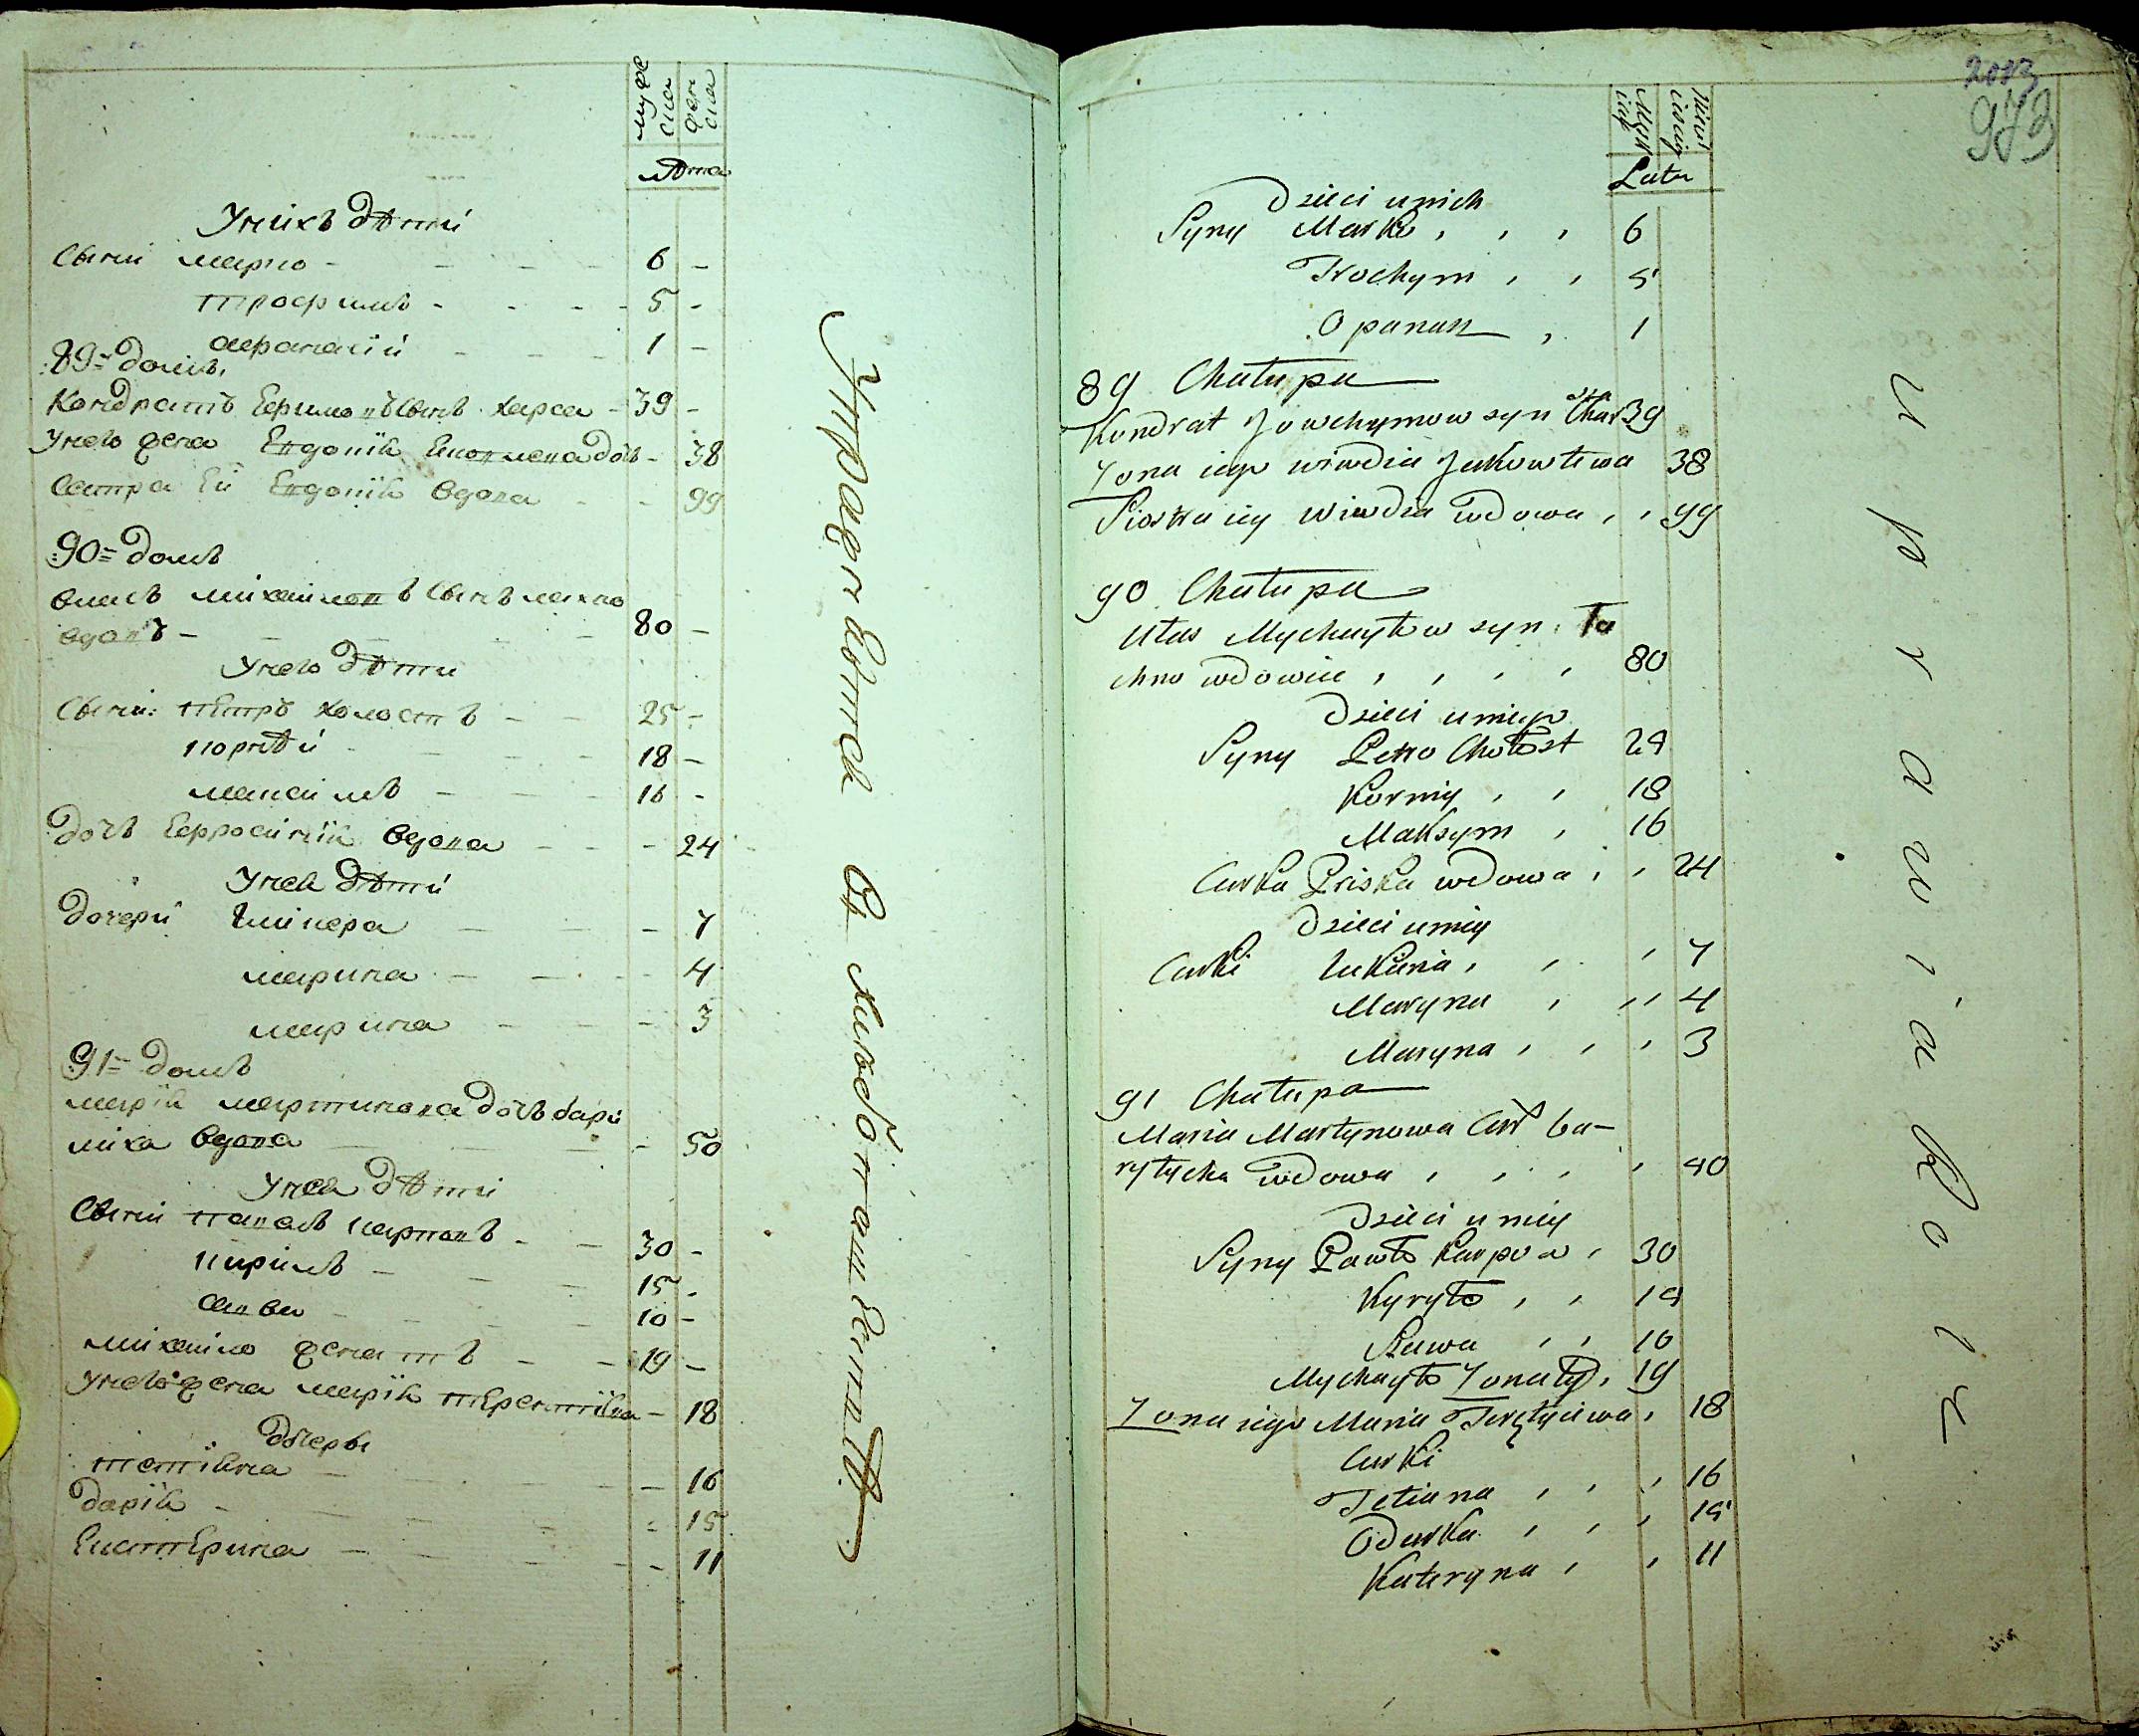 мужеска
женска
лѣта
Унихъ дѣти
Сыни марко - 6 -
трофимъ - 5 -
афанасiй - 1 -
89= домъ,
Кондратъ Ефимовъ Сынъ харса - 39 -
Унего жена Евдокiя Яковлева дочь - 38
Сестра Ей Евдокiя вдова - 99
90= домъ
власъ михайловъ Сынъ махно
вдовъ - 80 -
Унего дѣти
Сыни: пЕтръ холостъ - 25 -
корнѣй 18 -
максимъ - 16 -
дочь Ефросинiя вдова - 24
Унея дѣти
дочери Гликера - 7
марина - 4
марина - 3
91= домъ
марiя мартинова дочь бари
лиха вдова - 50
Унея дѣти
Сыни павелъ карповъ - 30 -
кирилъ - 15 -
Савва 10 -
михайло женатъ - 19 -
Унего жена марiя тЕрентiева - 18
дочеры
тетiяна - 16
дарiя - 15
ЕкаттЕрина - 11
Упражняются въ хлебопашествѣ
2013
973
Męsk
iey
Żeńs
kiey
Lata
Dzieci u nich
Syny Marko , , , 6
Trochym , , 5
Opanas , 1
89 Chałupa
Kondrat Jowchymow syn Char 39
Żona iego wiwdia Jakowlewa 38
Siostra iey Wiwdia wdowa , , 99
90 Chałupa
Ułas Mychayłow syn
chno wdowiec , , , , 80
Dzieci u niego
Syny Petro Chołost 25
Korniy , , 18
Maksym , 16
Curka Priska wdowa , , 24
Dzieci u niey
Curki Łukiria , , , 7
Maryna , , , 4
Maryna , , , 3
91 Chałupa
Maria Martynowa Cur ba-
ryłycha wdowa , , , , 50
Dzieci u niey
Syny Pawło Karpow , 30
Kyryło , , 15
Sawa , , 10
Mychayło Żonaty , 19
Żona iego Maria Teręty iewa , 18
Curki
Tetiana , , , 16
Odarka , , , 15
Kateryna , , 11
uprawia Rolę